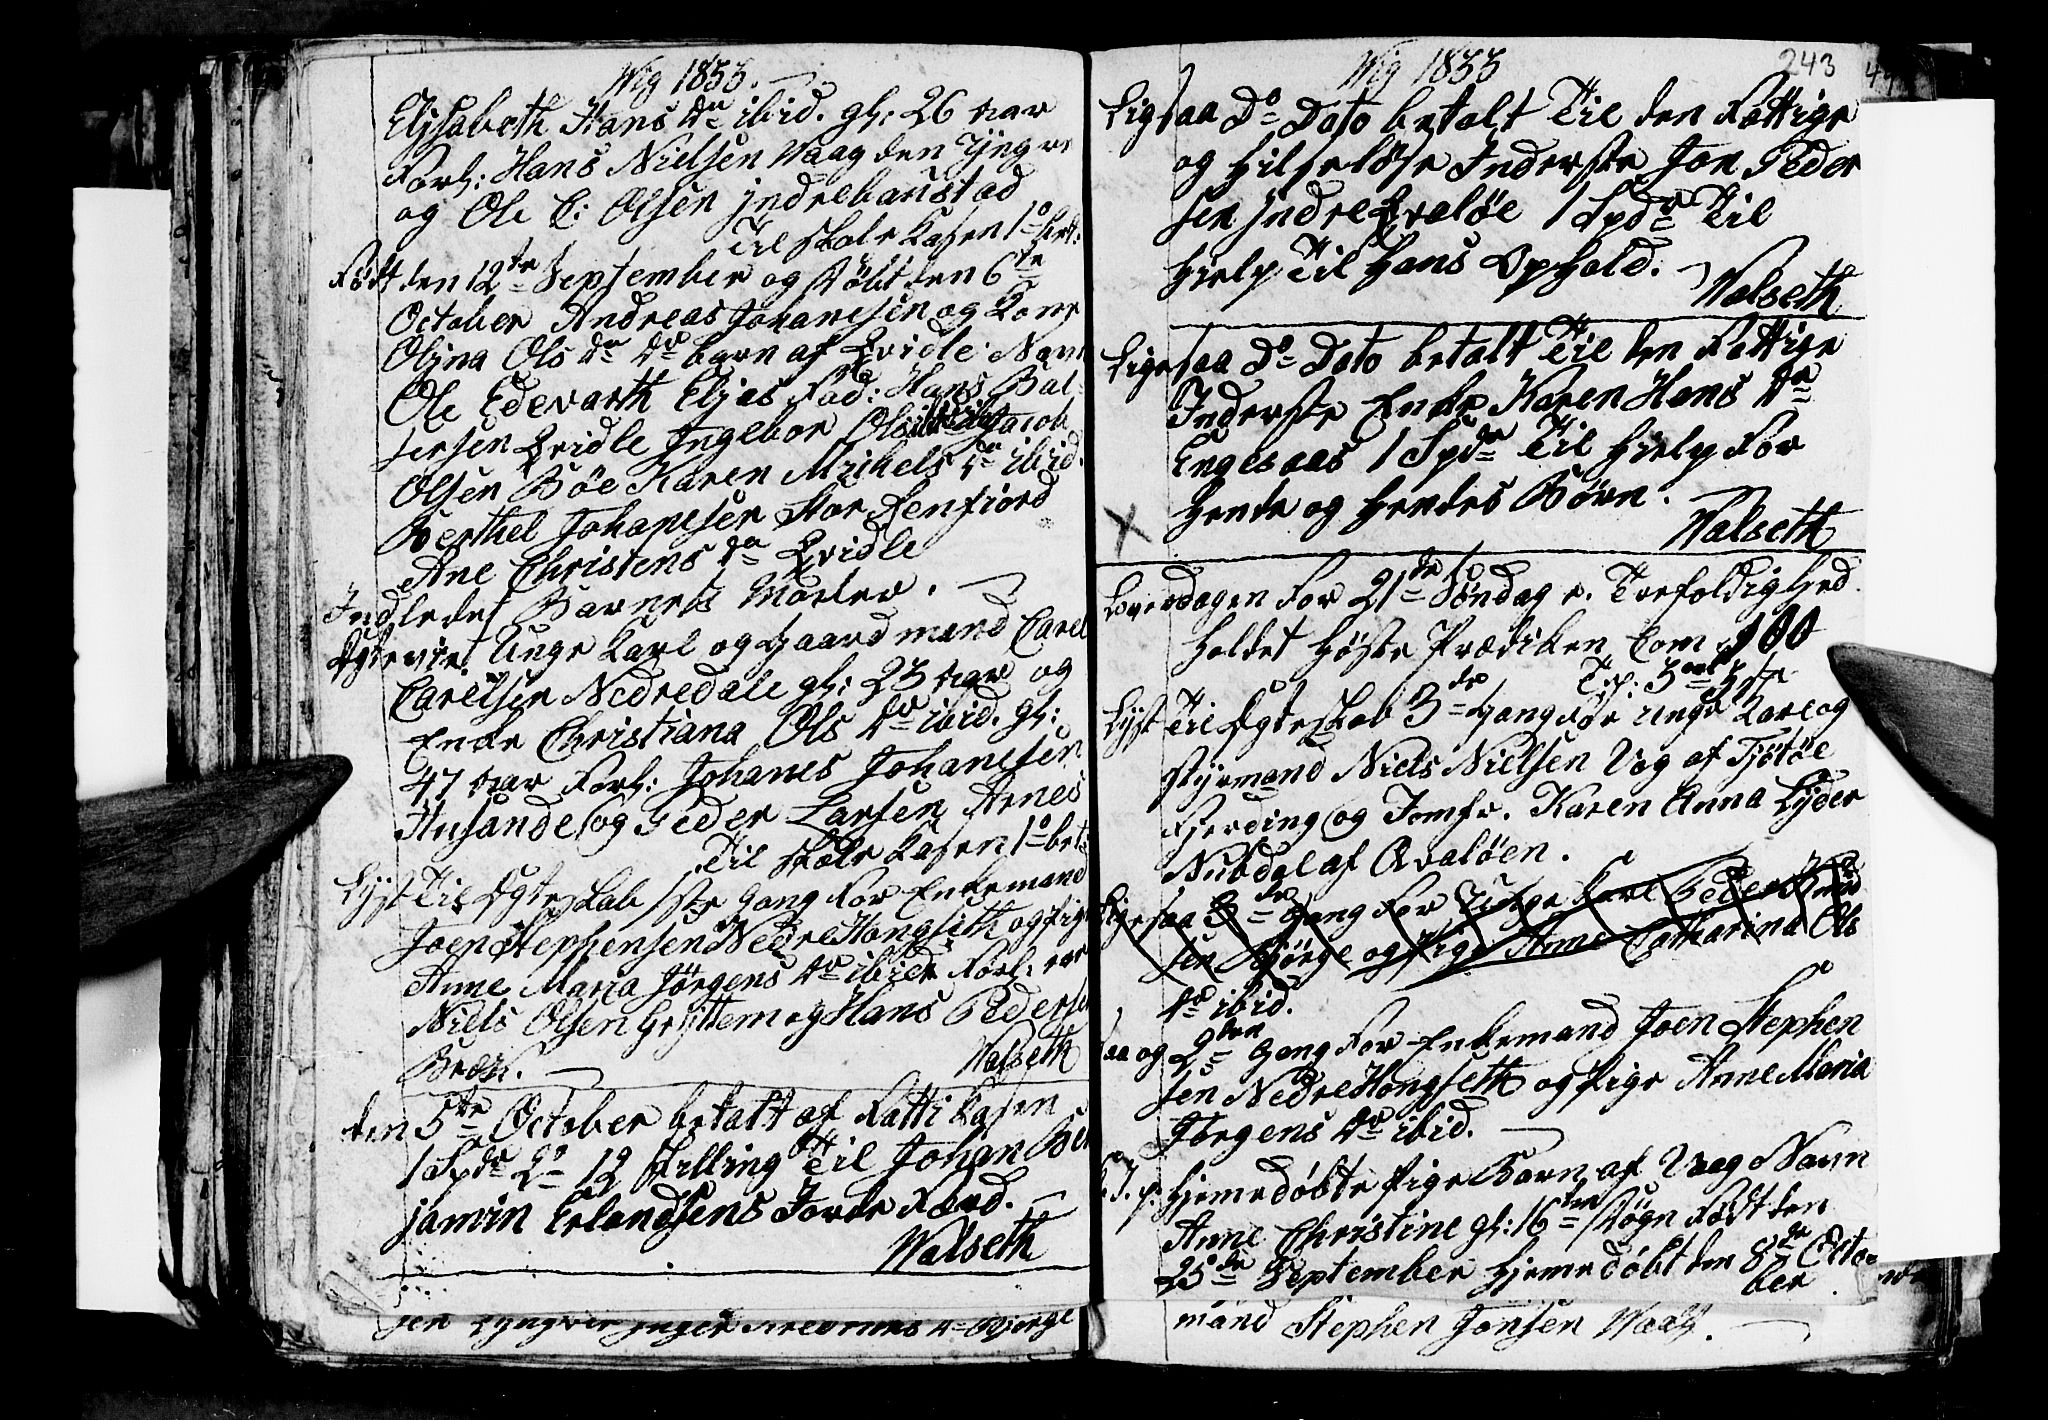 Wig 1833.
Elisabeth Hans Dr ibid. gl: 26 Aar
Forl: Hans Nielsen Waag den Yngre
og Ole C: Olsen Jndrebanstad
Til Skole Kasen 1o bet:
Født den 12te September og Døbt den 6te
October Andreas Johansen og Kone
Oljna Ols Dr Dr barn af Qvidle Navn
Ole Edevarth Elias Fad: Hans Bal-
sersen Qvidle Ingebor Ols Jacob
Olsen Bøe Karen Mikels Dr ibid.
Berthel Johansen Hor Senfiord
Ane Christens Dr Qvidle
Indledet Barnets Moder.
Ægteviet Unge Karl og Gaardmand Carel
Carelsen Nedredale gl: 23 Aar og
Enke Christiana Ols Dr ibid. gl:
47 Aar Forl: Johanes Johansen
Husande og Peder Larsen Arnes
Til Skole Kasen 1o bet:
Lyst Til Ægteskab 1ste Gang For Enkemand
Joen Stephensen Nedre Hongseth og Pige
Anne Maria Jørgens Dr ibid Forl: er
Niels Olsen Gryttem og Hans Pedersen
Walseth
den 5te October betalt af Fatti Kasen
1 Spdr 2o 12 Skilling Til Johan Ben
jamin Erlandsens Jorde Færd.
Walseth
Wig 1833
243
Ligesaa Do Dato betalt Til den Fattige
og Hilseløse Inderste Jon Peder
sen Jndre Qvaløe 1 Spdr Til
Hielp Til Hans Ophold.
Walseth
Ligesaa Do Dato betalt Til den Fattige
Inderste Enke Karen Hans Dr
Engesaas 1 Spdr Til Hielp For
Hende og Hendes Børn.
Walseth
X
Løverdagen For 21de Søndag e. Trefoldighed
Holdet Høste Prædiken Com 100
Lyst Til Ægteskab 3de Gang For unge Karl og
Styrmand Niels Nielsen Vog af Tjøtøe
Fjerding og Jomfr. Karen Anna Lyder
Nubdal af Qvaløen.
Ligesaa 3de Gang For Unge Karl Peder
sen Børge og Pige Anne Catharina Ols
Dr ibid.
saa og 2den Gang For Enkemand Joen Stephen
sen Nedre Hongseth og Pige Anne Maria
Jørgens Dr ibid.
Hjemedøbte Pige Barn af Vaag Navn
Anne Christine gl: 16ten Døgn Født den
23de September Hjemedøbt den 8de Octo-
ber
mand Stephen Jonsen Waag.